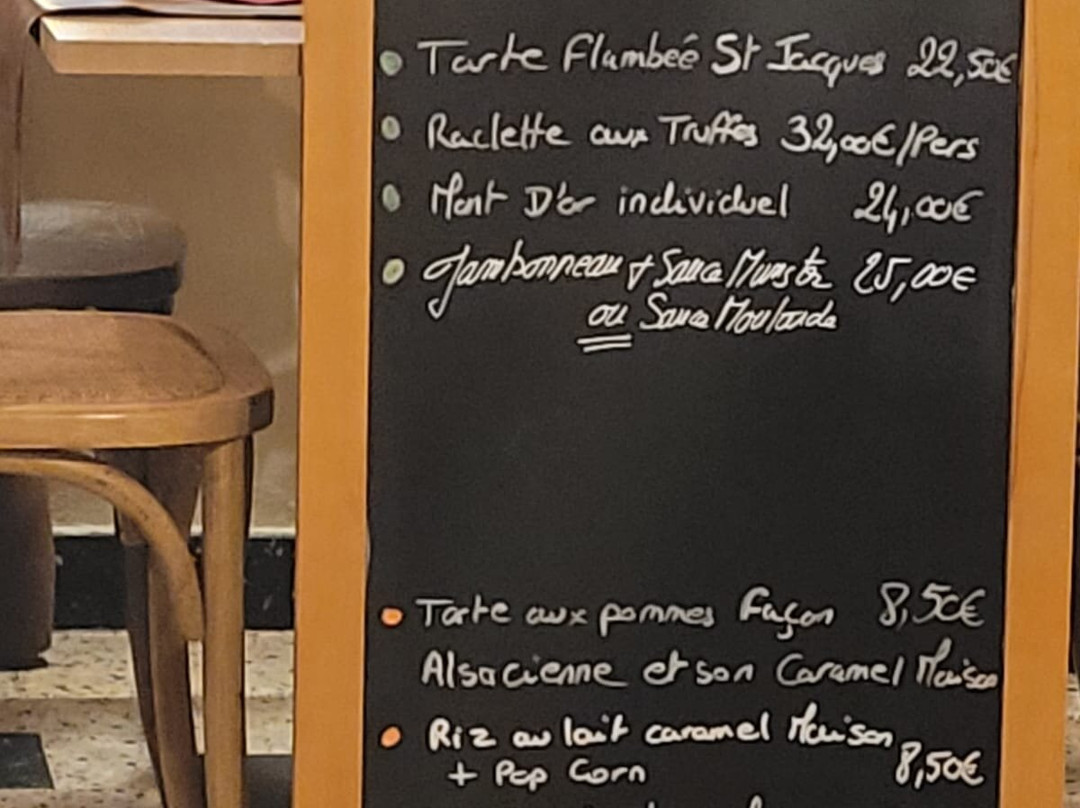 Tarte Flambeé St Jacques 22,50€
Raclette aux Truffes 32,00€/Pers
Mont D'or individuel 24,00€
Jambonneau + Sauce Munster 25,00€
ou Sauce Moutarde
Tarte aux pommes Façon 8,50€
Alsacienne et son Caramel Maison
Riz au lait caramel Maison
+ Pop Corn 8,50€